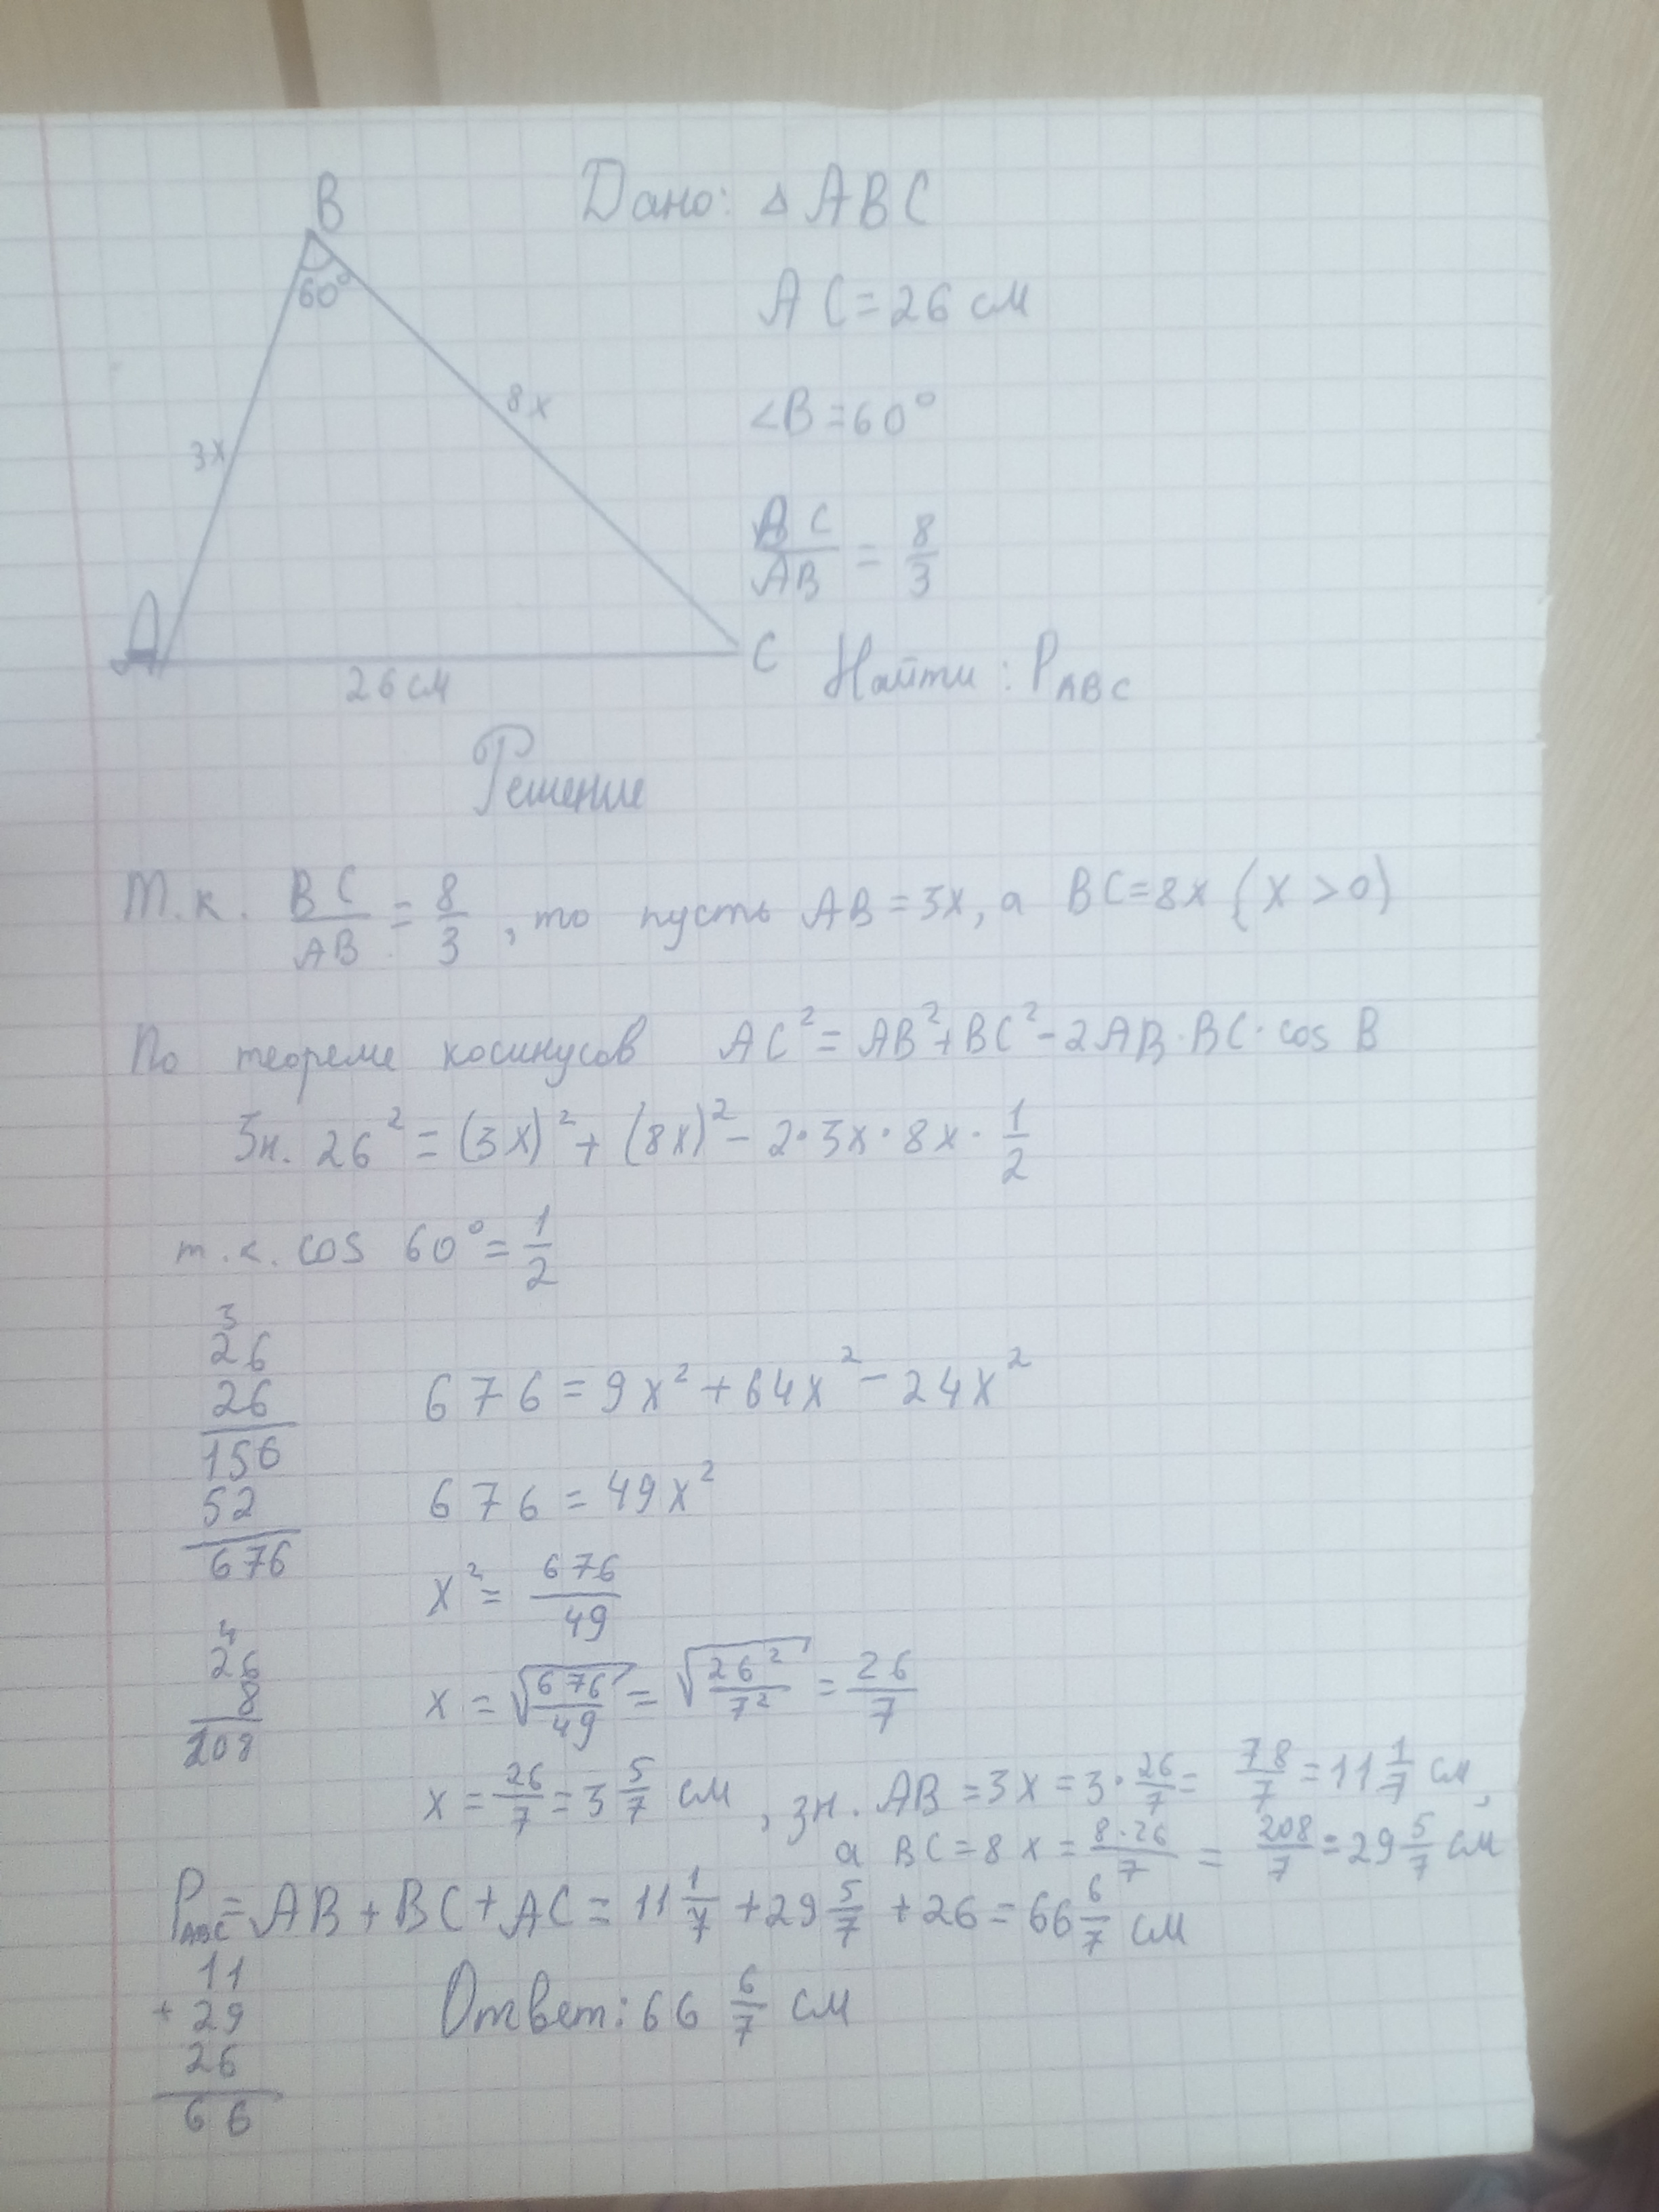 B
Дано: △ABC
60°
AC=26 см
8x
∠B=60°
3x
BC/AB = 8/3
A
C
26 см
Найти: P_ABC
Решение
Т.к. BC/AB = 8/3, то пусть AB=3x, а BC=8x (x>0)
По теореме косинусов AC²=AB²+BC²-2AB·BC·cos B
Зн. 26²=(3x)²+(8x)²-2·3x·8x·1/2
т.к. cos 60°=1/2
3
26
26
156
52
676
676=9x²+64x²-24x²
676=49x²
x²=676/49
4
26
8
208
x=√(676/49)=√(26²/7²)=26/7
x=26/7=3 5/7 см, зн. AB=3x=3·26/7=78/7=11 1/7 см,
а BC=8x=8·26/7=208/7=29 5/7 см
P_ABC=AB+BC+AC=11 1/7+29 5/7+26=66 6/7 см
11
+29
26
66
Ответ: 66 6/7 см